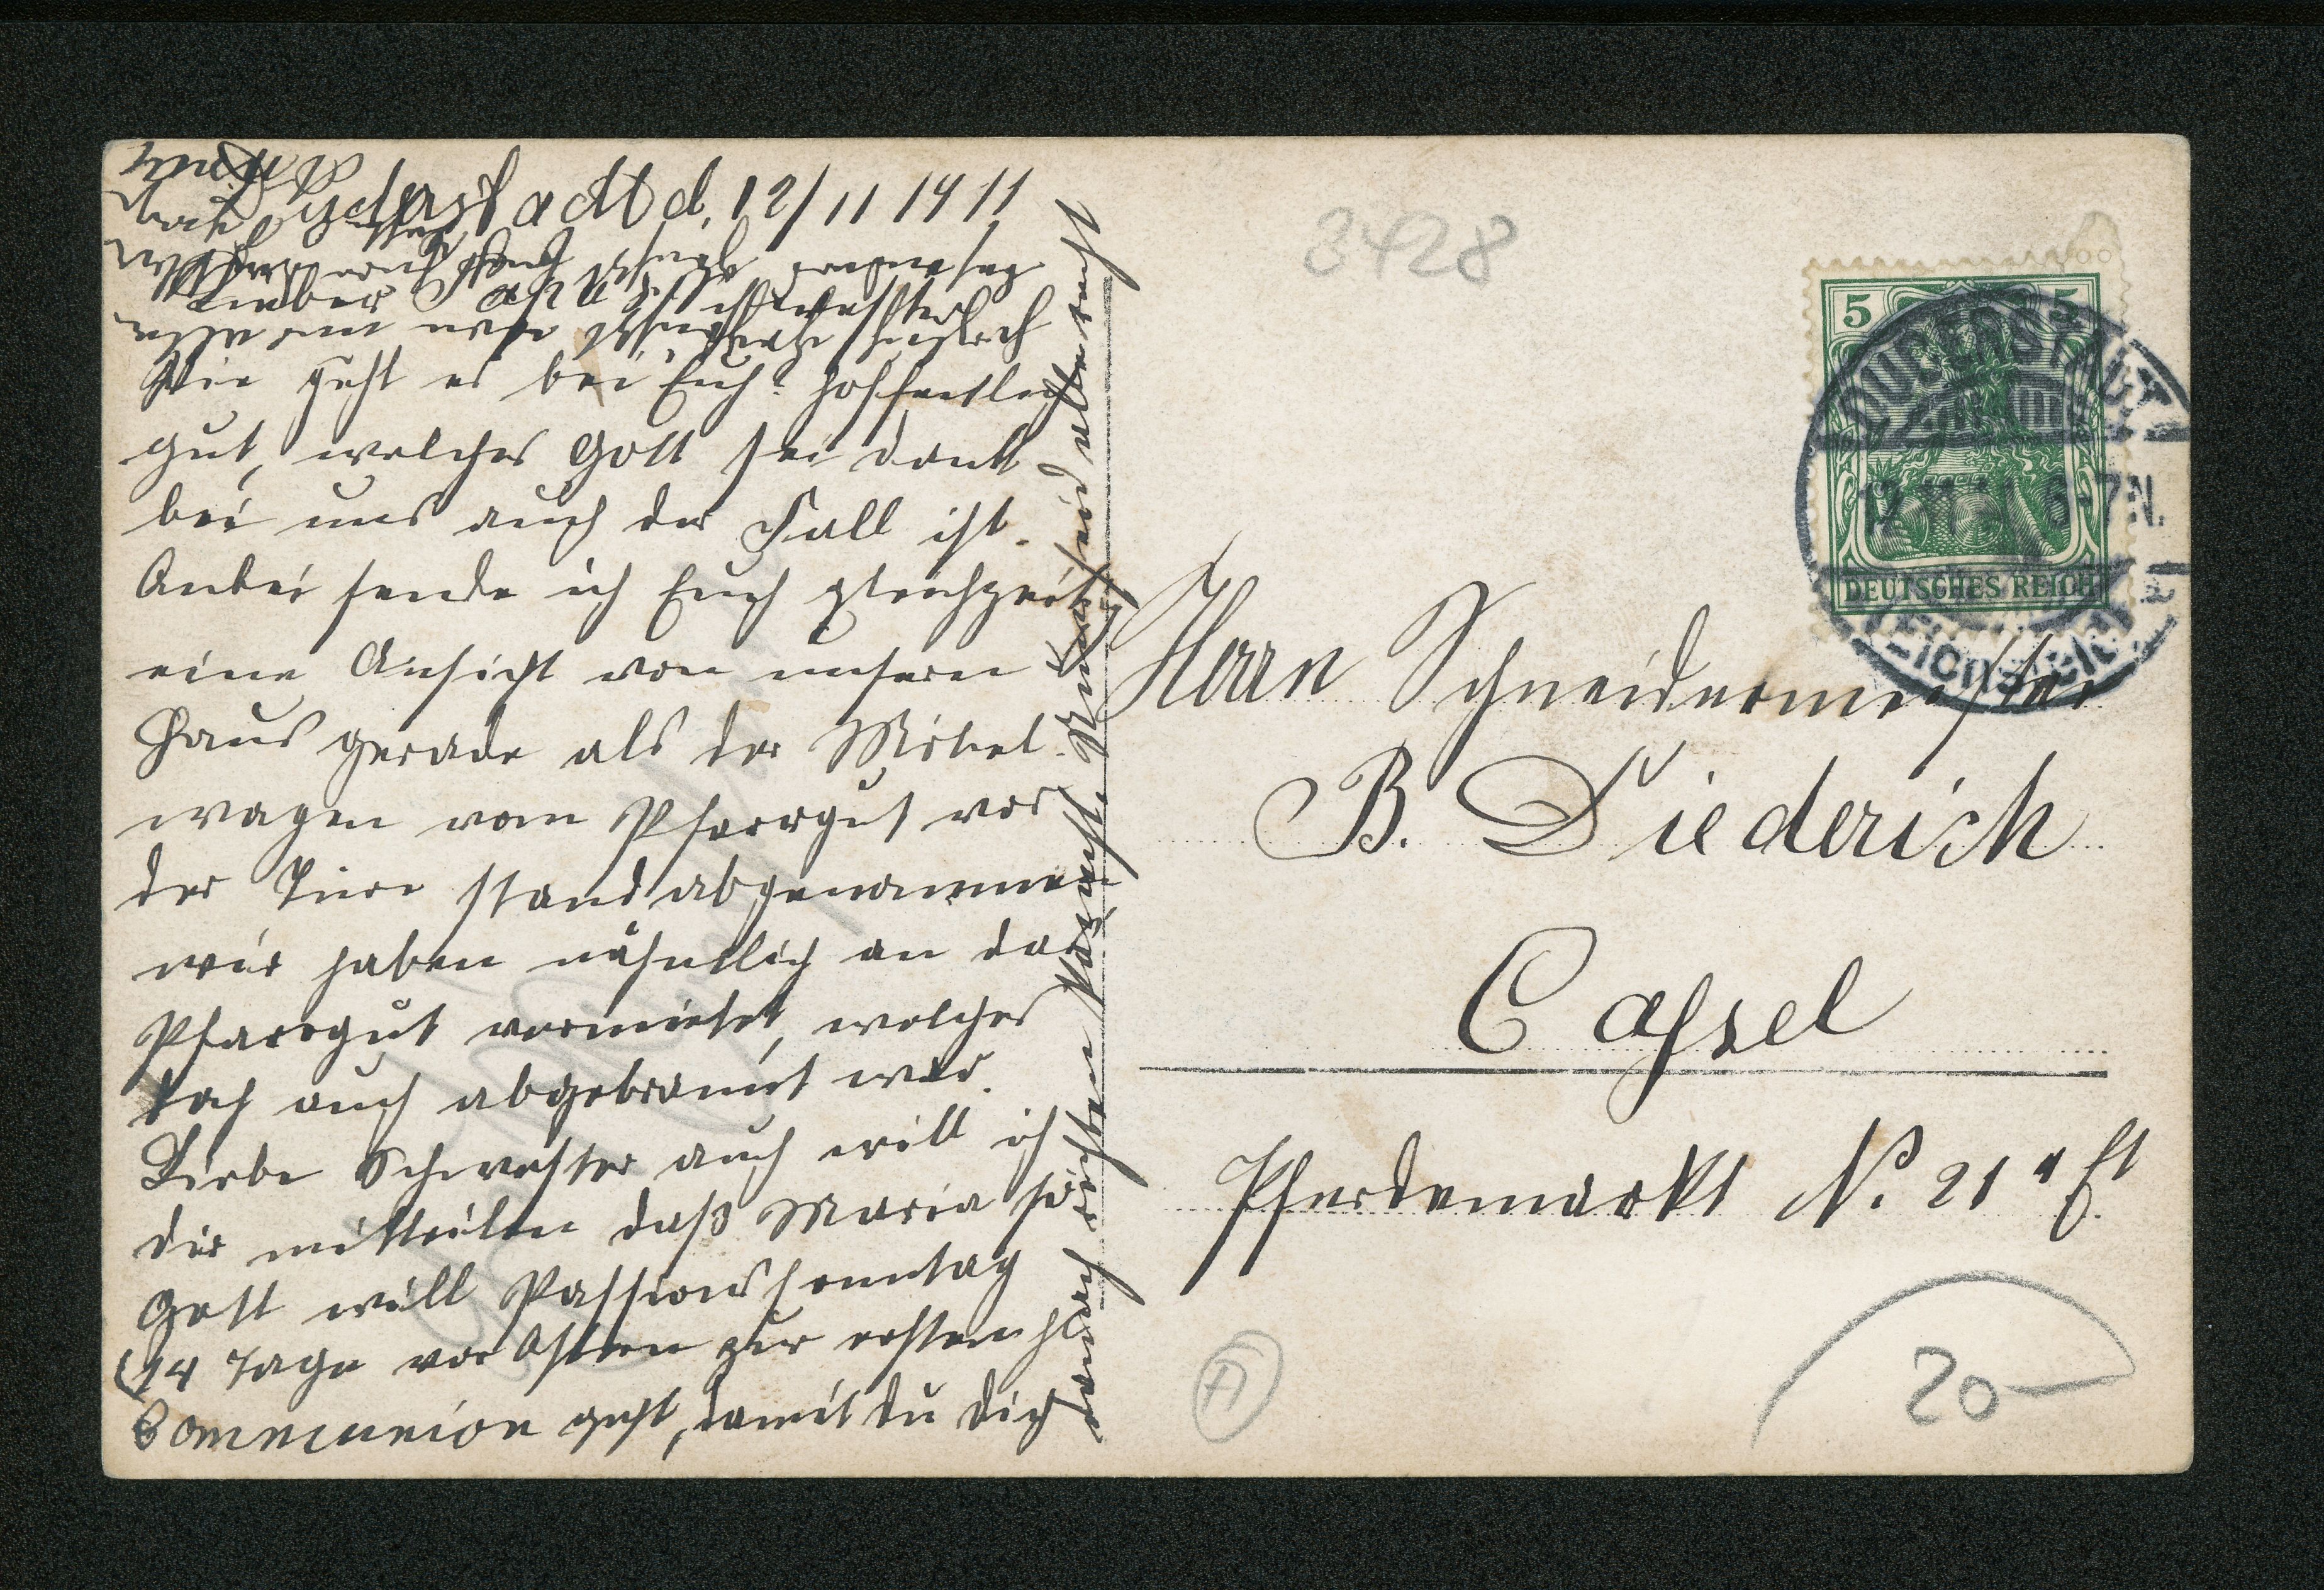 Duderstadt d. 12/11 1911
Lieber
Wie geht es bei Euch? hoffentlich
gut, welches Gott sei dank
bei uns auch der Fall ist.
Anbei sende ich Euch gleichzeitig
eine Ansicht von unsern
Haus gerade als der Möbel-
wagen vom Pfarrgut vor
der Türe stand abgenommen
wir haben nähmlich an das
Pfarrgut vermietet, welches
doch auch abgebrannt war.
Liebe Schwester auch will ich
dir mitteilen daß Maria so
Gott will Passionssonntag
(14 Tage vor Ostern zur ersten hl
Communion geht, damit du dich
danach richten kannst. Nun seid alle recht
3428
5 5
DEUTSCHES REICH
DUDERSTADT
12.11.11 6-7N.
Herrn Schneidermeister
B. Diederich
Cassel
Pferdemarkt No. 21 1 Et
20